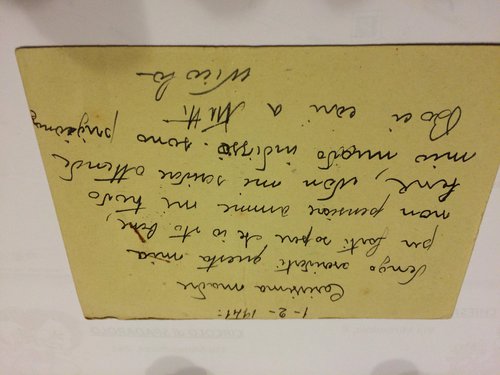 1-2-1941:
Carissima madre
Vengo ascriverti questa mia
per farti sapere che io sto bene,
non pensiare amme mi trovo
bene, Non mi scrivere attende
mio nuovo indizzo. sono prigionae
Baci cari a tutti
Nicola